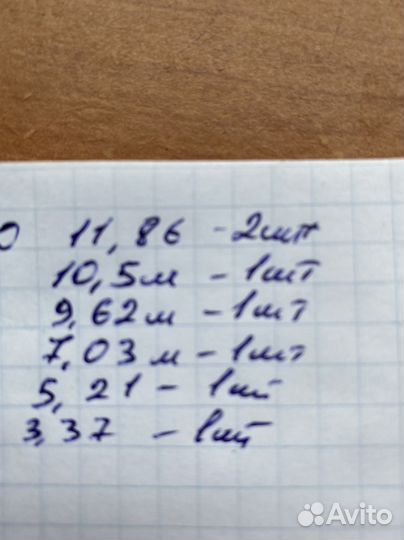 О 11,86 - 2шт
10,5м - 1шт
9,62м - 1шт
7,03м - 1шт
5,21 - 1шт
3,37 - 1шт
Avito